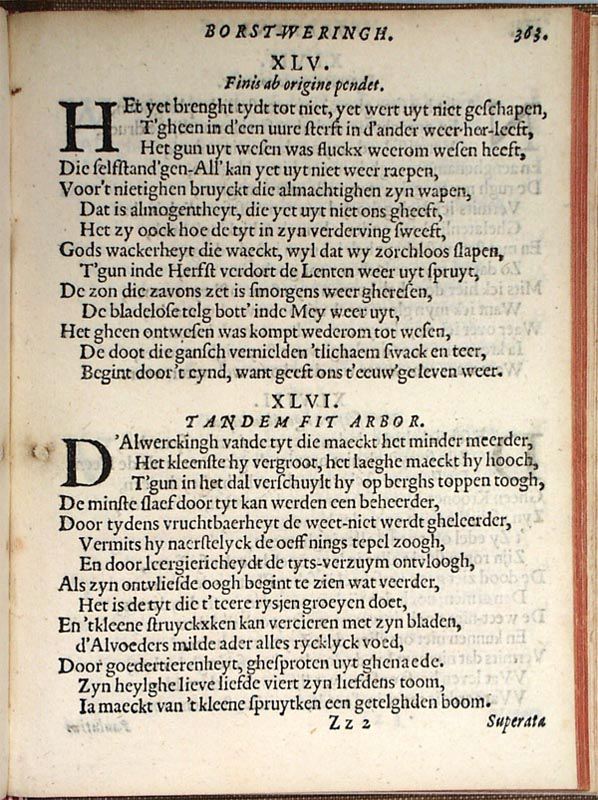 BORST-WERINGH. 363.
XLV.
Finis ab origine pendet.
HEt yet brenght tydt tot niet, yet wert uyt niet geschapen,
T'gheen in d'een uure sterft in d'ander weer-her-leeft,
Het gun uyt wesen was fluckx weerom wesen heeft,
Die selfstand'gen-All' kan yet uyt niet weer raepen,
Voor't nietighen bruyckt die almachtighen zyn wapen,
Dat is almogentheyt, die yet uyt niet ons gheeft,
Het zy oock hoe de tyt in zyn verderving sweeft,
Gods wackerheyt die waeckt, wyl dat wy zorchloos slapen,
T'gun inde Herfst verdort de Lenten weer uyt spruyt,
De zon die zavons zet is smorgens weer gheresen,
De bladelose telg bott' inde Mey weer uyt,
Het gheen ontwesen was kompt wederom tot wesen,
De doot die gansch vernielden 'tlichaem swack en teer,
Begint door't eynd, want geeft ons t'eeuw'ge leven weer.
XLVI.
TANDEM FIT ARBOR.
D'Alwerckingh vande tyt die maeckt het minder meerder,
Het kleenste hy vergroot, het laeghe maeckt hy hooch,
T'gun in het dal verschuylt hy op berghs toppen toogh,
De minste slaef door tyt kan werden een beheerder,
Door tydens vruchtbaerheyt de weet-niet werdt gheleerder,
Vermits hy naerstelyck de oeffnings tepel zoogh,
En door leergiericheydt de tyts-verzuym ontvloogh,
Als zyn ontvliesde oogh begint te zien wat veerder,
Het is de tyt die t'teere rysjen groeyen doet,
En 'tkleene struyckxken kan vercieren met zyn bladen,
d'Alvoeders milde ader alles rycklyck voed,
Door goedertierenheyt, ghesproten uyt ghenaede.
Zyn heylghe lieve liefde viert zyn liefdens toom,
Ia maeckt van 't kleene spruytken een getelghden boom.
Zz 2 Superata